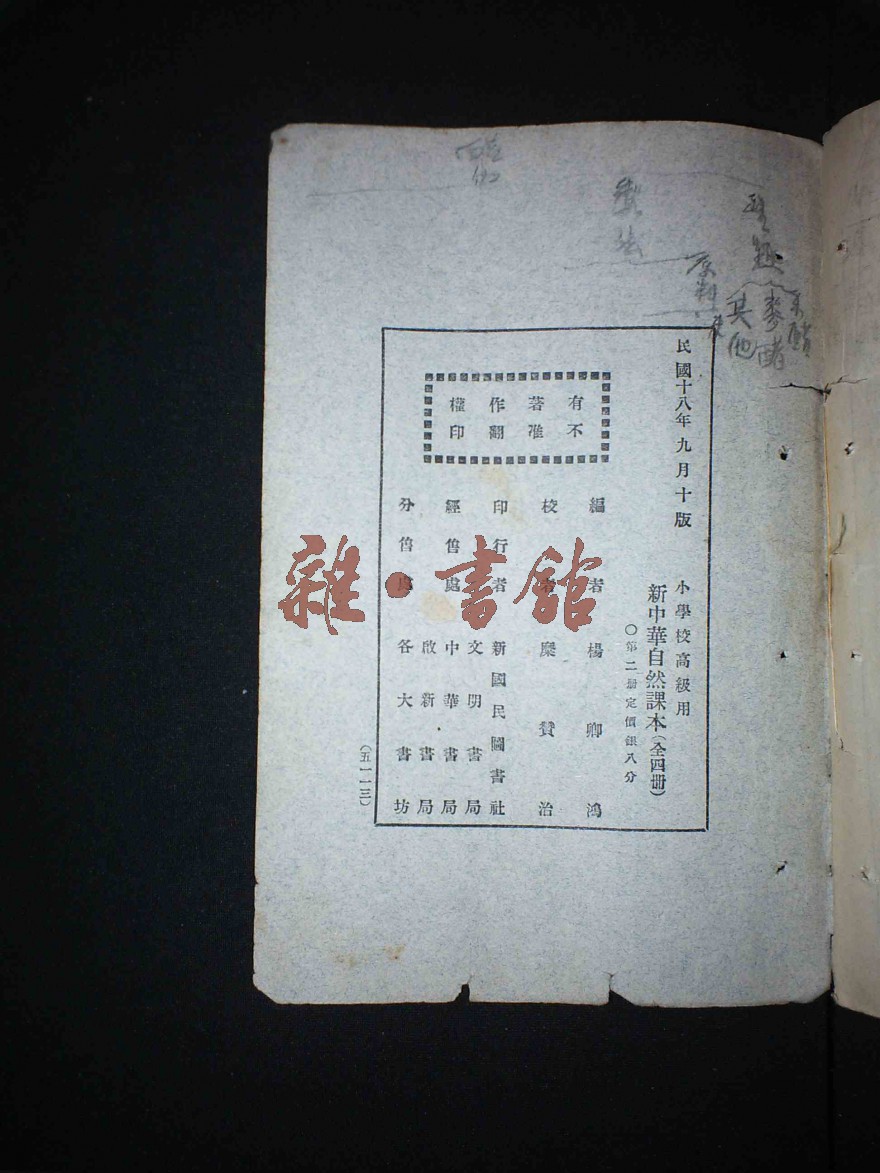 民國十八年九月十版
小學校高級用
新中華自然課本（全四册）
〇第二册定價銀八分
有不
著准
作翻
權印
編者 楊卿鴻
校者 糜贊治
印行者 新國民圖書社
經售處 文明書局
中華書局
啟新書局
分售處 各大書坊
（五一一三）
製法
原料
麥
其他
雜·書館